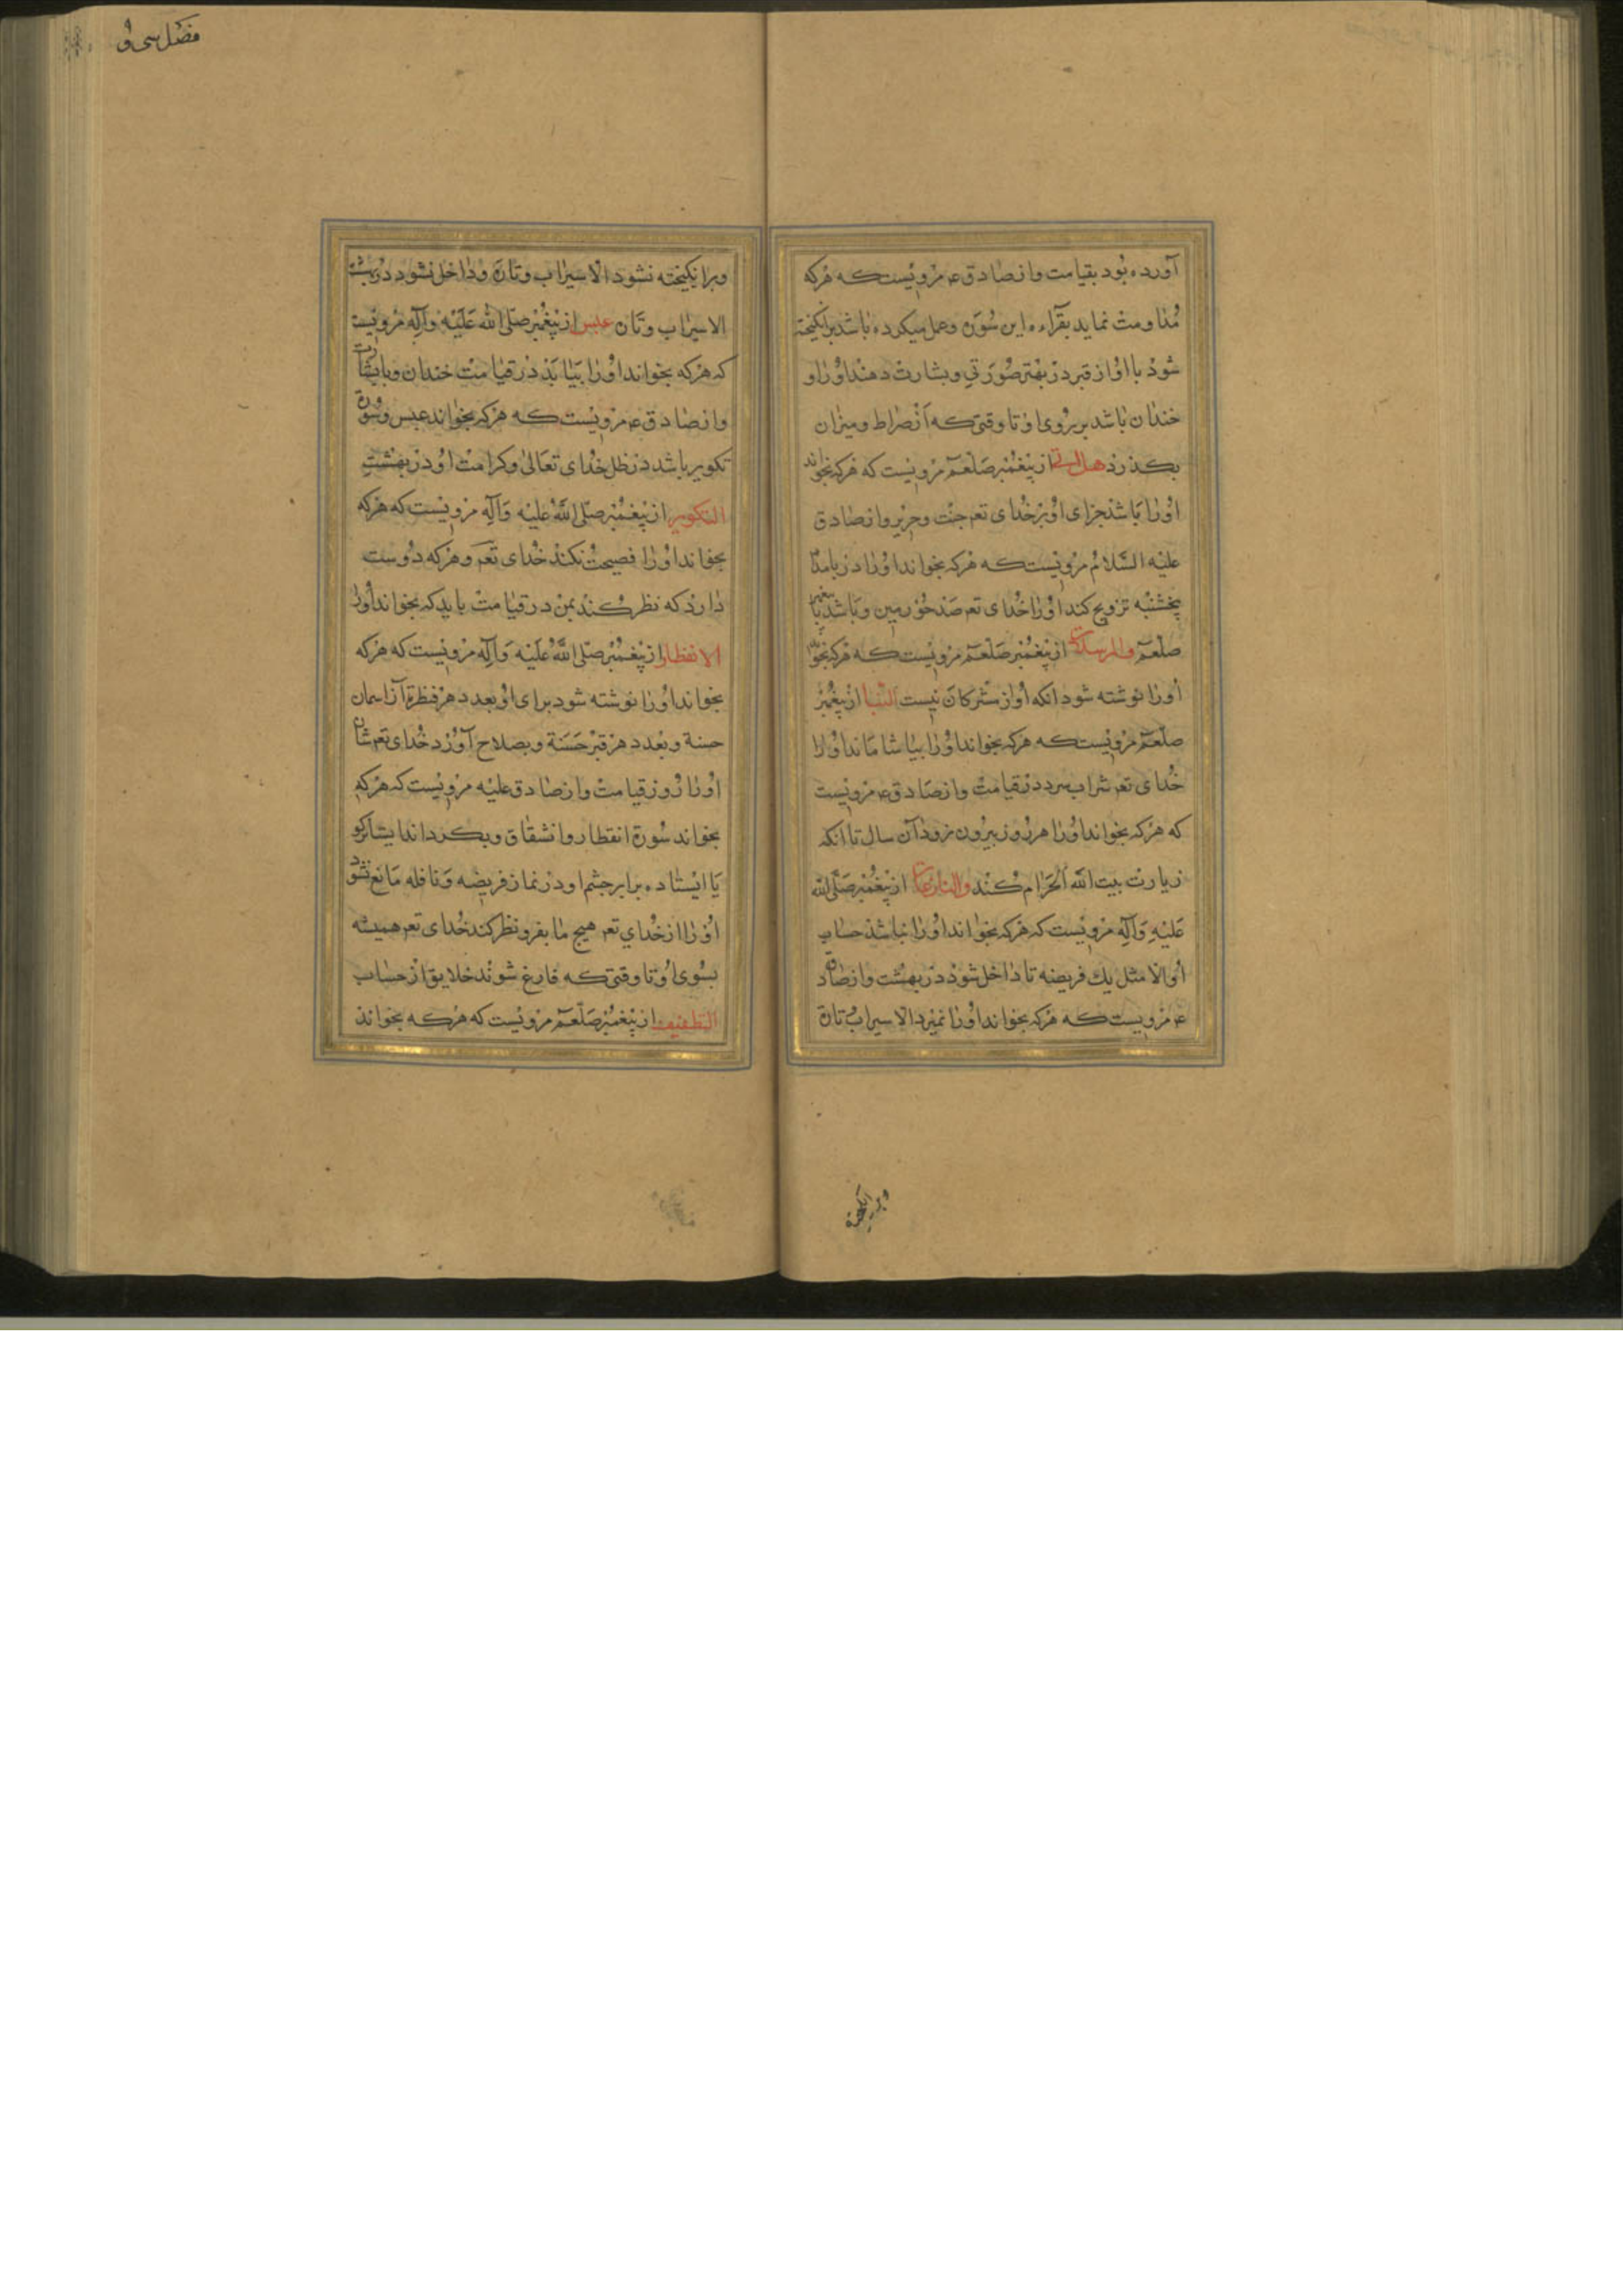 آورده بود بقیامت و از صادق ع مرویست که هرکه
مداومت نماید بقراءه این سوره و عمل میکرده باشد برانکیخته
شود با او از قبر در بهتر صورتی و بشارت دهند او را و
خندان باشد بر روی او تا وقتی که از صراط و میزان
بکذرد هل اتی از پیغمبر صلعم مرویست که هرکه بخواند
او را باشد جزای او بر خدای تعم جنت و حریر و از صادق
علیه السلام مرویست که هرکه بخواند او را در بامداد
پنجشنبه تزویج کند او را خدای تعم صد حور عین و باشد با پیغمبر
صلعم والمرسلات از پیغمبر صلعم مرویست که هرکه بخواند
او را نوشته شود انکه او از مشرکان نیست النبا از پیغمبر
صلعم مرویست که هرکه بخواند او را بیاشاماند او را
خدای تعم شراب سرد در قیامت و از صادق ع مرویست
که هرکه بخواند او را هر روز بیرون نرود آن سال تا آنکه
زیارت بیت الله الحرام کند والنازعات از پیغمبر صلی الله
علیه وآله مرویست که هرکه بخواند او را نباشد حساب
او الا مثل یک فریضه تا داخل شود در بهشت و از صادق
ع مرویست که هرکه بخواند او را نمیرد الا سیراب تازه
وبرانکیخته
فضل سی و
وبرانکیخته نشود الا سیراب وتازه و داخل نشود در بهشت
الا سیراب وتازه عبس از پیغمبر صلی الله علیه وآله مرویست
که هرکه بخواند او را بیاید در قیامت خندان و با بشارت
و از صادق ع مرویست که هرکه بخواند عبس و سوره
تکویر باشد در ظل خدای تعالی و کرامت او در بهشت
التکویر از پیغمبر صلی الله علیه وآله مرویست که هرکه
بخواند او را فضیحت نکند خدای تعم و هرکه دوست
دارد که نظر کند بمن در قیامت باید که بخواند او را
الانفطار از پیغمبر صلی الله علیه وآله مرویست که هرکه
بخواند او را نوشته شود برای او بعدد هر قطره آز اسمان
حسنة و بعدد هر قبر حسنة و بصلاح آورد خدای تعم شان
او را روز قیامت و از صادق علیه مرویست که هرکه
بخواند سورة انفطار و انشقاق و بکرداند ایشانرا
یا ایستاده برابر چشم او در نماز فریضه و نافله مانع نشود
او را از خدای تعم هیچ مانع و نظر کند خدای تعم همیشه
بسوی او تا وقتی که فارغ شوند خلایق از حساب
التطفیف از پیغمبر صلعم مرویست که هرکه بخواند